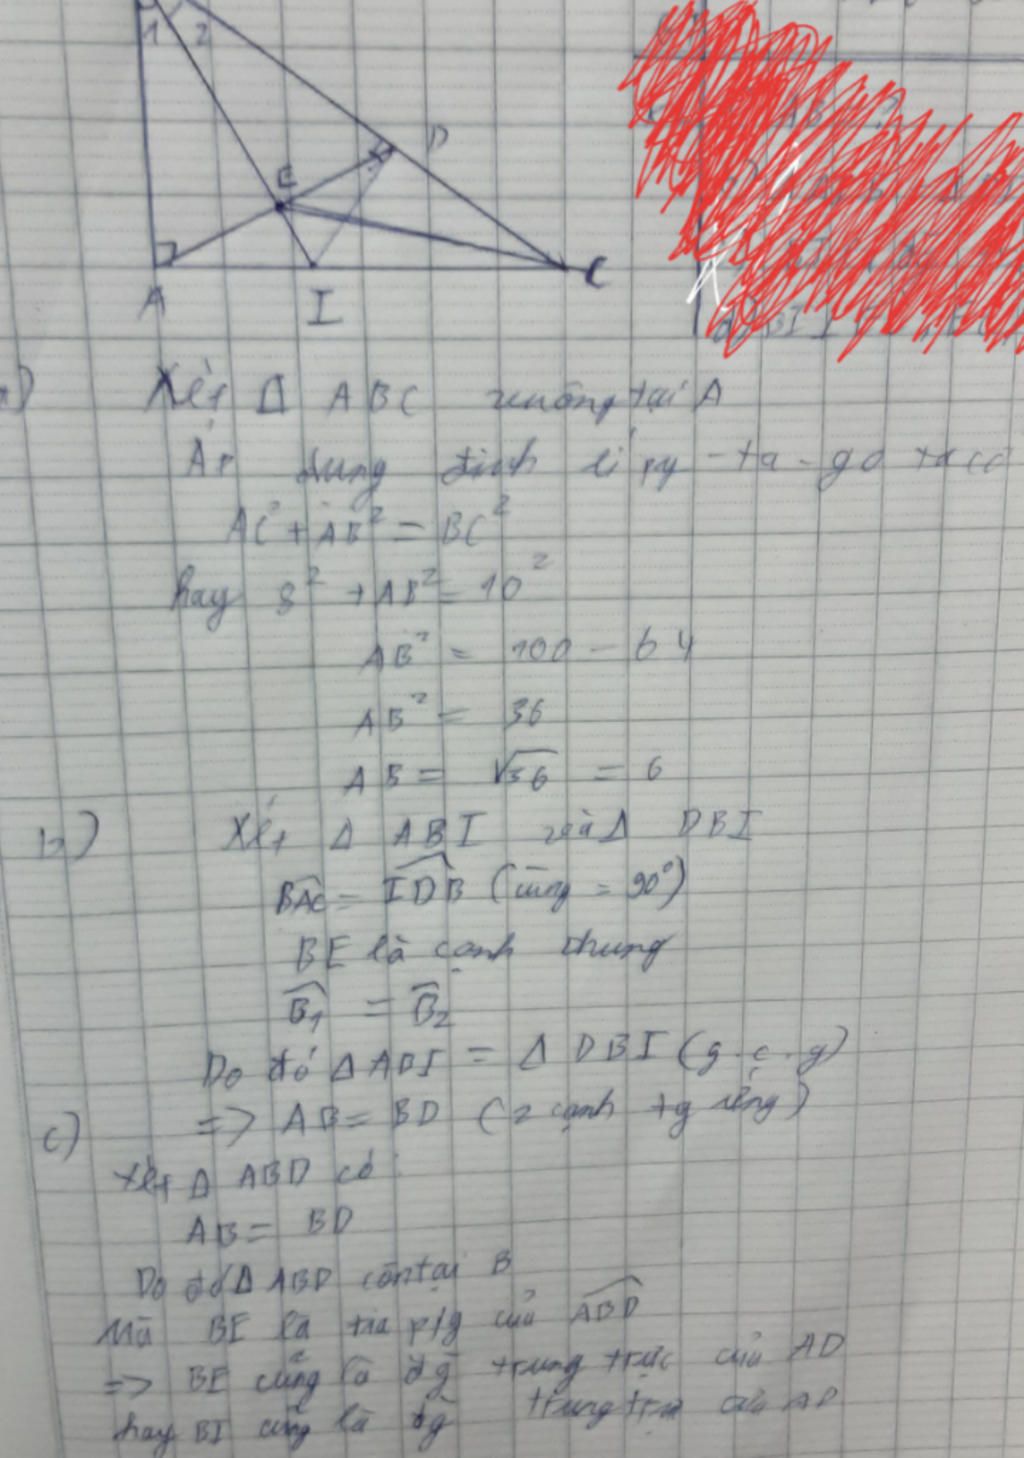 1 2
D
E
A I C
a) Xét Δ ABC vuông tại A
Áp dụng định lí py-ta-go ta có
AC² + AB² = BC²
hay 8² + AB² = 10²
AB² = 100 - 64
AB² = 36
AB = √36 = 6
b) Xét Δ ABI và Δ DBI
BAC = IDB (cùng = 90°)
BE là cạnh chung
B₁ = B₂
Do đó Δ ABI = Δ DBI (g.c.g)
=> AB = BD (2 cạnh tg ứng)
c)
Xét Δ ABD có:
AB = BD
Do đó Δ ABD cân tại B
Mà BE là tia p/g của ABD
=> BE cũng là đg trung trực của AD
hay BI cũng là đg trung trực của AD